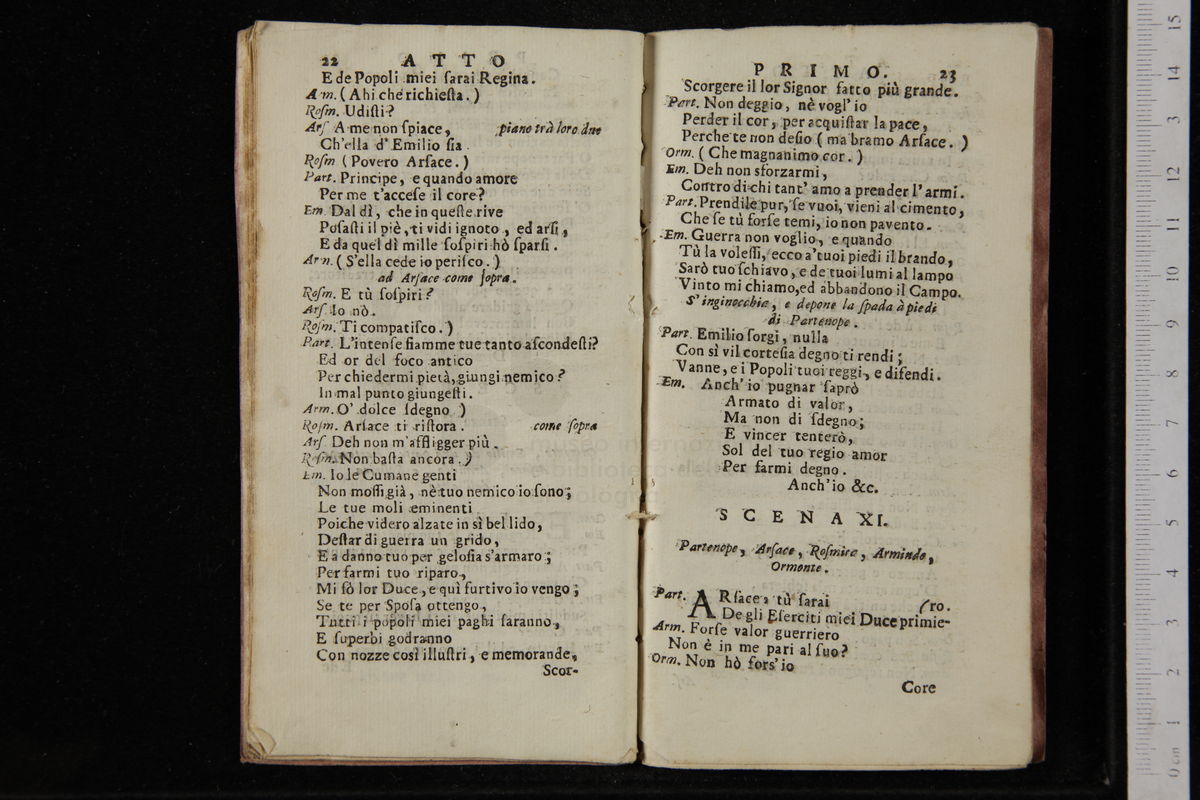 22 ATTO
E de Popoli miei ſarai Regina.
Am. (Ahi che richieſta.)
Roſm. Udiſti?
Arſ A me non ſpiace, piano trà loro due
Ch'ella d'Emilio ſia.
Roſm (Povero Arſace.)
Part. Principe, e quando amore
Per me t'acceſe il core?
Em. Dal dì, che in queſte rive
Poſaſti il piè, ti vidi ignoto, ed arſi,
E da quel dì mille ſoſpiri hò ſparſi.
Arn. (S'ella cede io periſco.)
ad Arſace come ſopra.
Roſm. E tù ſoſpiri?
Arſ. Io nò.
Roſm. Ti compatiſco.)
Part. L'intenſe fiamme tue tanto aſcondeſti?
Ed or del foco antico
Per chiedermi pietà, giungi nemico?
In mal punto giungeſti.
Arm. O' dolce ſdegno )
Roſm. Arſace ti riſtora. come ſopra
Arſ. Deh non m'affligger più.
Roſm. Non baſta ancora.)
Em. Io le Cumane genti
Non moſſi già, nè tuo nemico io ſono;
Le tue moli eminenti
Poiche videro alzate in sì bel lido,
Deſtar di guerra un grido,
E a danno tuo per geloſia s'armaro;
Per farmi tuo riparo,
Mi fò lor Duce, e quì furtivo io vengo;
Se te per Spoſa ottengo,
Tutti i popoli miei paghi ſaranno,
E ſuperbi godranno
Con nozze così illuſtri, e memorande,
Scor-
PRIMO. 23
Scorgere il lor Signor fatto più grande.
Part. Non deggio, nè vogl'io
Perder il cor, per acquiſtar la pace,
Perche te non deſio (ma bramo Arſace.)
Orm. (Che magnanimo cor.)
Em. Deh non sforzarmi,
Contro di chi tant'amo a prender l'armi.
Part. Prendile pur, ſe vuoi, vieni al cimento,
Che ſe tù forſe temi, io non pavento.
Em. Guerra non voglio, e quando
Tù la voleſſi, ecco a'tuoi piedi il brando,
Sarò tuo ſchiavo, e de tuoi lumi al lampo
Vinto mi chiamo, ed abbandono il Campo.
S'inginocchia, e depone la ſpada à piedi
di Partenope.
Part. Emilio ſorgi, nulla
Con sì vil corteſia degno ti rendi;
Vanne, e i Popoli tuoi reggi, e difendi.
Em. Anch'io pugnar ſaprò
Armato di valor,
Ma non di ſdegno;
E vincer tenterò,
Sol del tuo regio amor
Per farmi degno.
Anch'io &c.
SCENA XI.
Partenope, Arſace, Roſmira, Armindo,
Ormonte.
Part. ARſace, tù ſarai (ro.
De gli Eſerciti miei Duce primie-
Arm. Forſe valor guerriero
Non è in me pari al ſuo?
Orm. Non hò forſ'io
Core